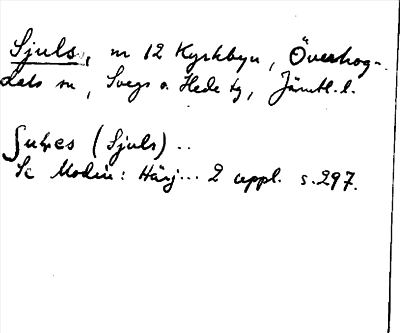 Sjuls, nr 12 Kyrkbyn, Överhog-
dals sn, Svegs o. Hede tg, Jämtl. l.
(Sjuls) ..
Se Modin: Härj... 2 uppl. s. 297.